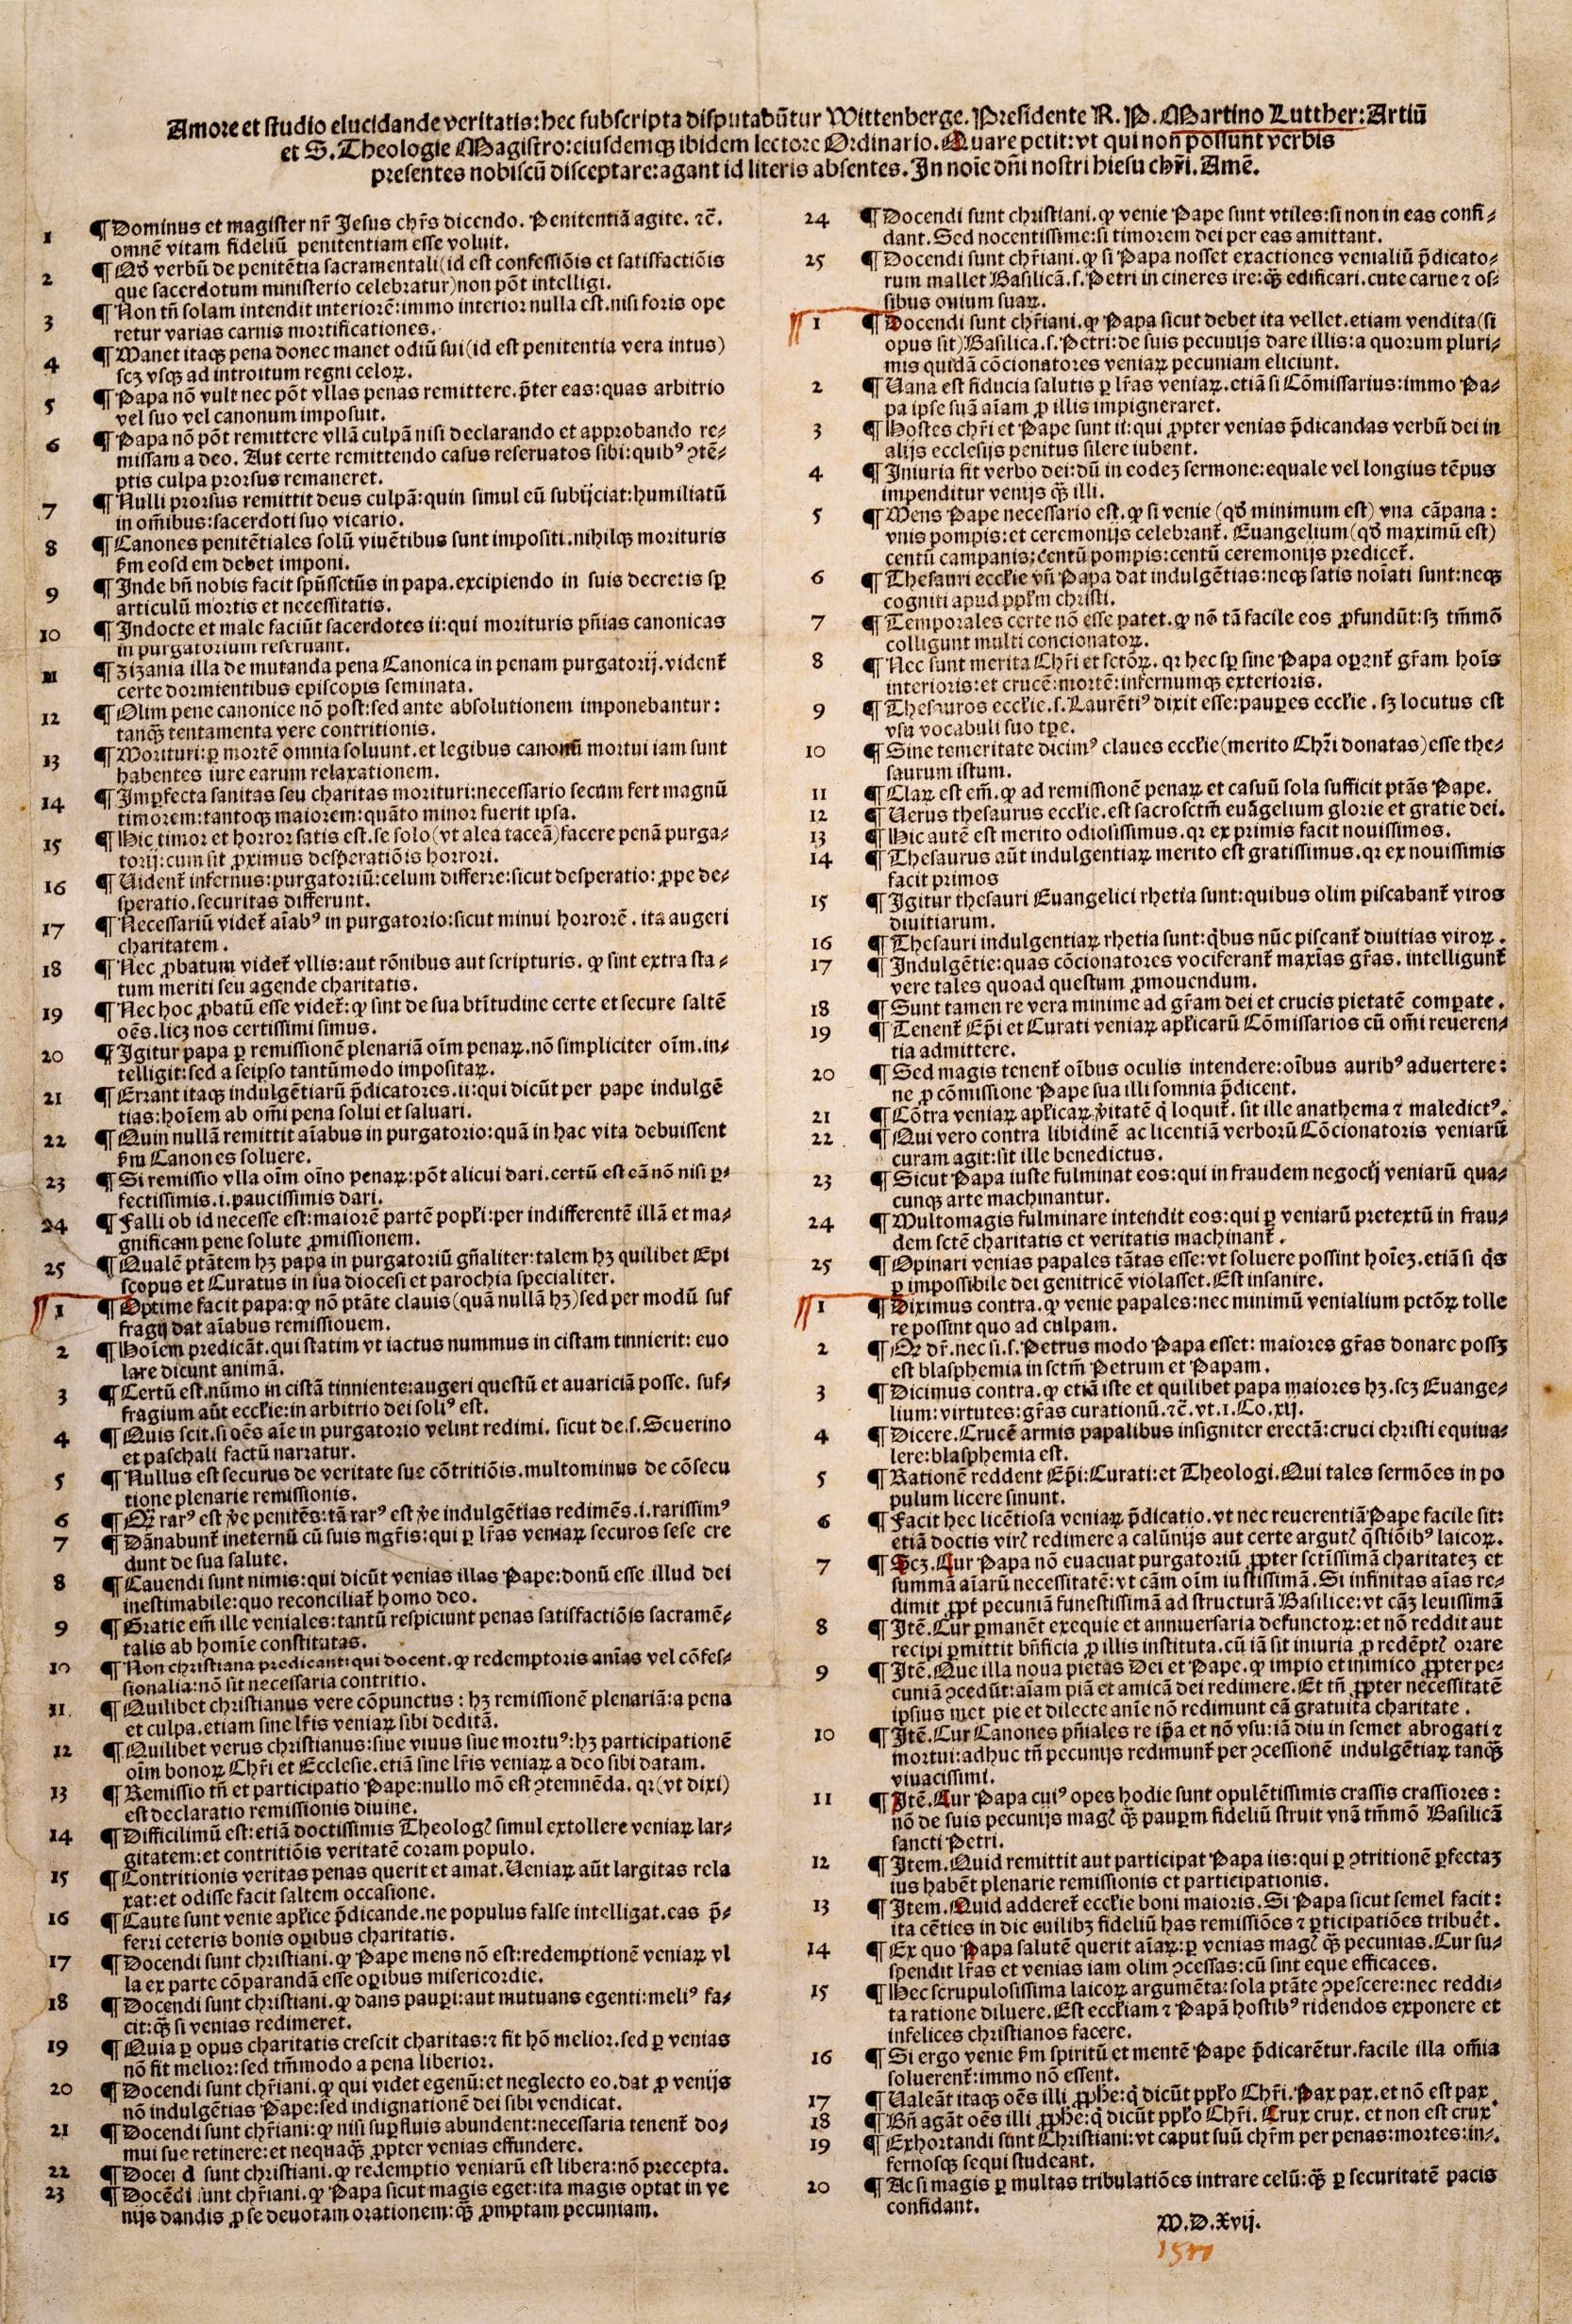 Amore et studio elucidande veritatis: hec subscripta disputabūtur Wittenberge. Presidente R. P. Martino Lutther: Artiū
et S. Theologie Magistro: eiusdemqꝫ ibidem lectore Ordinario. Quare petit: vt qui non possunt verbis
presentes nobiscū disceptare: agant id literis absentes. In noīe dn̄i nostri hiesu chr̄i. Amē.
1 ¶ Dominus et magister nr̄ Jesus chr̄s dicendo. Penitentiā agite. ⁊c̄.
omnē vitam fideliū penitentiam esse voluit.
2 ¶ Qđ verbū de penitētia sacramentali (id est confessiōis et satisfactiōis
que sacerdotum ministerio celebratur) non pōt intelligi.
3 ¶ Non tn̄ solam intendit interiorē: immo interior nulla est. nisi foris ope
retur varias carnis mortificationes.
4 ¶ Manet itaqꝫ pena donec manet odiū sui (id est penitentia vera intus)
scꝫ vsqꝫ ad introitum regni celoꝝ.
5 ¶ Papa nō vult nec pōt vllas penas remittere. p̄ter eas: quas arbitrio
vel suo vel canonum imposuit.
6 ¶ Papa nō pōt remittere vllā culpā nisi declarando et approbando re⸗
missam a deo. Aut certe remittendo casus reseruatos sibi: quibꝰ ꝯtē⸗
ptis culpa prorsus remaneret.
7 ¶ Nulli prorsus remittit deus culpā: quin simul eū subijciat: humiliatū
in om̄ibus: sacerdoti suo vicario.
8 ¶ Canones penitētiales solū viuētibus sunt impositi. nihilqꝫ morituris
s̄m eosdem debet imponi.
9 ¶ Inde bn̄ nobis facit spūssctūs in papa. excipiendo in suis decretis sꝑ
articulū mortis et necessitatis.
10 ¶ Indocte et male faciūt sacerdotes ii: qui morituris pn̄ias canonicas
in purgatorium reseruant.
11 ¶ Zizania illa de mutanda pena Canonica in penam purgatorij. vident᷑
certe dormientibus episcopis seminata.
12 ¶ Olim pene canonice nō post: sed ante absolutionem imponebantur:
tanqꝫ̄ tentamenta vere contritionis.
13 ¶ Morituri: ꝑ mortē omnia soluunt. et legibus canonū mortui iam sunt
habentes iure earum relaxationem.
14 ¶ Imꝑfecta sanitas seu charitas morituri: necessario secum fert magnū
timorem: tantoqꝫ maiorem: quāto minor fuerit ipsa.
15 ¶ Hic timor et horror satis est. se solo (vt alea taceā) facere penā purga⸗
torij: cum sit ꝓximus desperatiōis horrori.
16 ¶ Vident᷑ infernus: purgatoriū: celum differre: sicut desperatio: ꝓpe de⸗
speratio. securitas differunt.
17 ¶ Necessariū videt᷑ aīabꝰ in purgatorio: sicut minui horrorē. ita augeri
charitatem.
18 ¶ Nec ꝓbatum videt᷑ vllis: aut rōnibus aut scripturis. ꝙ sint extra sta⸗
tum meriti seu agende charitatis.
19 ¶ Nec hoc ꝓbatū esse videt᷑: ꝙ sint de sua btītudine certe et secure saltē
oēs. licꝫ nos certissimi simus.
20 ¶ Igitur papa ꝑ remissionē plenariā oīm penaꝝ. nō simpliciter oīm. in⸗
telligit: sed a seipso tantūmodo impositaꝝ.
21 ¶ Errant itaqꝫ indulgētiarū p̄dicatores. ii: qui dicūt per pape indulgē
tias: hoīem ab om̄i pena solui et saluari.
22 ¶ Quin nullā remittit aīabus in purgatorio: quā in hac vita debuissent
s̄m Canones soluere.
23 ¶ Si remissio vlla oīm oīno penaꝝ: pōt alicui dari. certū est eā nō nisi ꝑ⸗
fectissimis. i. paucissimis dari.
24 ¶ Falli ob id necesse est: maiorē partē popłi: per indifferentē illā et ma⸗
gnificam pene solute ꝓmissionem.
25 ¶ Qualē ptātem hꝫ papa in purgatoriū gn̄aliter: talem hꝫ quilibet Epi
scopus et Curatus in sua diocesi et parochia specialiter.
1 ¶ Optime facit papa: ꝙ nō ptāte clauis (quā nullā hꝫ) sed per modū suf
fragij dat aīabus remissiouem.
2 ¶ Hoīem predicāt. qui statim vt iactus nummus in cistam tinnierit: euo
lare dicunt animā.
3 ¶ Certū est. nūmo in cistā tinniente: augeri questū et auariciā posse. suf⸗
fragium aūt ecclie: in arbitrio dei soliꝰ est.
4 ¶ Quis scit. si oēs aīe in purgatorio velint redimi. sicut de. s. Seuerino
et paschali factū narratur.
5 ¶ Nullus est securus de veritate sue cōtritiōis. multominus de cōsecu
tione plenarie remissionis.
6 ¶ Qꝫ̄ rarꝰ est v̄e penitēs: tā rarꝰ est v̄e indulgētias redimēs. i. rarissimꝰ
7 ¶ Dānabunt᷑ ineternū cū suis mgr̄is: qui ꝑ lr̄as veniaꝝ securos sese cre
dunt de sua salute.
8 ¶ Cauendi sunt nimis: qui dicūt venias illas Pape: donū esse illud dei
inestimabile: quo reconciliat᷑ homo deo.
9 ¶ Gratie em̄ ille veniales: tantū respiciunt penas satisfactiōis sacramē⸗
talis ab homīe constitutas.
10 ¶ Non christiana predicant: qui docent. ꝙ redemptoris anīas vel cōfes⸗
sionalia: nō sit necessaria contritio.
11. ¶ Quilibet christianus vere cōpunctus: hꝫ remissionē plenariā: a pena
et culpa. etiam sine lr̄is veniaꝝ sibi deditā.
12 ¶ Quilibet verus christianus: siue viuus siue mortuꝰ: hꝫ participationē
oīm bonoꝝ Chr̄i et Ecclesie. etiā sine lr̄is veniaꝝ a deo sibi datam.
13 ¶ Remissio tn̄ et participatio Pape: nullo mō est ꝯtemnēda. qꝛ (vt dixi)
est declaratio remissionis diuine.
14 ¶ Difficilimū est: etiā doctissimis Theologꝭ simul extollere veniaꝝ lar⸗
gitatem: et contritiōis veritatē coram populo.
15 ¶ Contritionis veritas penas querit et amat. Veniaꝝ aūt largitas rela
xat: et odisse facit saltem occasione.
16 ¶ Caute sunt venie apłice p̄dicande. ne populus false intelligat. eas p̄⸗
ferri ceteris bonis oꝑibus charitatis.
17 ¶ Docendi sunt christiani. ꝙ Pape mens nō est: redemptionē veniaꝝ vl
la ex parte cōparandā esse oꝑibus misericordie.
18 ¶ Docendi sunt christiani. ꝙ dans pauꝑi: aut mutuans egenti: meliꝰ fa⸗
cit: qꝫ̄ si venias redimeret.
19 ¶ Quia ꝑ opus charitatis crescit charitas: ⁊ fit hō melior. sed ꝑ venias
nō fit melior: sed tm̄modo a pena liberior.
20 ¶ Docendi sunt chr̄iani. ꝙ qui videt egenū: et neglecto eo. dat ꝓ venijs
nō indulgētias Pape: sed indignationē dei sibi vendicat.
21 ¶ Docendi sunt chr̄iani: ꝙ nisi suꝑfluis abundent: necessaria tenent᷑ do⸗
mui sue retinere: et nequaqꝫ̄ ꝓpter venias effundere.
22 ¶ Docei d sunt christiani. ꝙ redemptio veniarū est libera: nō precepta.
23 ¶ Docēdi sunt chr̄iani. ꝙ Papa sicut magis eget: ita magis optat in ve
nijs dandis ꝓ se deuotam orationem: qꝫ̄ ꝓmptam pecuniam.
24 ¶ Docendi sunt christiani. ꝙ venie Pape sunt vtiles: si non in eas confi⸗
dant. Sed nocentissime: si timorem dei per eas amittant.
25 ¶ Docendi sunt chr̄iani. ꝙ si Papa nosset exactiones venialiū p̄dicato⸗
rum mallet Basilicā. s. Petri in cineres ire: qꝫ̄ edificari. cute carne ⁊ os⸗
sibus ouium suaꝝ.
1 ¶ Docendi sunt chr̄iani. ꝙ Papa sicut debet ita vellet. etiam vendita (si
opus sit) Basilica. s. Petri: de suis pecunijs dare illis: a quorum pluri⸗
mis quidā cōcionatores veniaꝝ pecuniam eliciunt.
2 ¶ Vana est fiducia salutis ꝑ lr̄as veniaꝝ. etiā si Cōmissarius: immo Pa⸗
pa ipse suā aīam ꝓ illis impigneraret.
3 ¶ Hostes chr̄i et Pape sunt ii: qui ꝓpter venias p̄dicandas verbū dei in
alijs ecclesijs penitus silere iubent.
4 ¶ Iniuria fit verbo dei: dū in eodeꝫ sermone: equale vel longius tēpus
impenditur venijs qꝫ̄ illi.
5 ¶ Mens Pape necessario est. ꝙ si venie (qđ minimum est) vna cāpana:
vnis pompis: et ceremonijs celebrant᷑. Euangelium (qđ maximū est)
centū campanis: centū pompis: centū ceremonijs predicet᷑.
6 ¶ Thesauri ecclie vn̄ Papa dat indulgētias: neqꝫ satis noīati sunt: neqꝫ
cogniti apud ppłm christi.
7 ¶ Temporales certe nō esse patet. ꝙ nō tā facile eos ꝓfundūt: sꝫ tm̄mō
colligunt multi concionatoꝝ.
8 ¶ Nec sunt merita Chr̄i et sctōꝝ. qꝛ hec sꝑ sine Papa oꝑant᷑ gr̄am hoīs
interioris: et crucē: mortē: infernumqꝫ exterioris.
9 ¶ Thesauros ecclie. s. Laurētiꝰ dixit esse: pauꝑes ecclie. sꝫ locutus est
vsu vocabuli suo tꝑe.
10 ¶ Sine temeritate dicimꝰ claues ecclie (merito Chr̄i donatas) esse the⸗
saurum istum.
11 ¶ Claꝝ est em̄. ꝙ ad remissionē penaꝝ et casuū sola sufficit ptās Pape.
12 ¶ Verus thesaurus ecclie. est sacrosctm̄ euāgelium glorie et gratie dei.
13 ¶ Hic autē est merito odiosissimus. qꝛ ex primis facit nouissimos.
14 ¶ Thesaurus aūt indulgentiaꝝ merito est gratissimus. qꝛ ex nouissimis
facit primos
15 ¶ Igitur thesauri Euangelici rhetia sunt: quibus olim piscabant᷑ viros
diuitiarum.
16 ¶ Thesauri indulgentiaꝝ rhetia sunt: q̄bus nūc piscant᷑ diuitias viroꝝ.
17 ¶ Indulgētie: quas cōcionatores vociferant᷑ maxīas gr̄as. intelligunt᷑
vere tales quoad questum ꝓmouendum.
18 ¶ Sunt tamen re vera minime ad gr̄am dei et crucis pietatē comparate.
19 ¶ Tenent᷑ Ep̄i et Curati veniaꝝ apłicarū Cōmissarios cū om̄i reueren⸗
tia admittere.
20 ¶ Sed magis tenent᷑ oībus oculis intendere: oībus auribꝰ aduertere:
ne ꝓ cōmissione Pape sua illi somnia p̄dicent.
21 ¶ Cōtra veniaꝝ apłicaꝝ v̄itatē q̄ loquit᷑. sit ille anathema ⁊ maledictꝰ.
22 ¶ Qui vero contra libidinē ac licentiā verborū Cōcionatoris veniarū
curam agit: sit ille benedictus.
23 ¶ Sicut Papa iuste fulminat eos: qui in fraudem negocij veniarū qua⸗
cunqꝫ arte machinantur.
24 ¶ Multomagis fulminare intendit eos: qui ꝑ veniarū pretextū in frau⸗
dem sctē charitatis et veritatis machinant᷑.
25 ¶ Opinari venias papales tātas esse: vt soluere possint hoīeꝫ. etiā si q̄s
ꝑ impossibile dei genitricē violasset. Est insanire.
1 ¶ Diximus contra. ꝙ venie papales: nec minimū venialium pctōꝝ tolle
re possint quo ad culpam.
2 ¶ Qꝛ dr̄. nec si. s. Petrus modo Papa esset: maiores gr̄as donare possꝫ
est blasphemia in sctm̄ Petrum et Papam.
3 ¶ Dicimus contra. ꝙ etiā iste et quilibet papa maiores hꝫ. scꝫ Euange⸗
lium: virtutes: gr̄as curationū. ⁊c̄. vt. 1. Co. xij.
4 ¶ Dicere. Crucē armis papalibus insigniter erectā: cruci christi equiua⸗
lere: blasphemia est.
5 ¶ Rationē reddent Ep̄i: Curati: et Theologi. Qui tales sermōes in po
pulum licere sinunt.
6 ¶ Facit hec licētiosa veniaꝝ p̄dicatio. vt nec reuerentiā Pape facile sit:
etiā doctis virꝭ redimere a calūnijs aut certe argutꝭ q̄stiōibꝰ laicoꝝ.
7 ¶ Scꝫ. Cur Papa nō euacuat purgatoriū ꝓpter sctīssimā charitateꝫ et
summā aīarū necessitatē: vt cām oīm iustissimā. Si infinitas aīas re⸗
dimit ꝓpt᷑ pecuniā funestissimā ad structurā Basilice: vt cāꝫ leuissimā
8 ¶ Itē. Cur ꝑmanēt exequie et anniuersaria defunctoꝝ: et nō reddit aut
recipi ꝑmittit bn̄ficia ꝓ illis instituta. cū iā sit iniuria ꝓ redēptꝭ orare
9 ¶ Itē. Que illa noua pietas Dei et Pape. ꝙ impio et inimico ꝓpter pe⸗
cuniā ꝯcedūt: aīam piā et amicā dei redimere. Et tn̄ ꝓpter necessitatē
ipsius met pie et dilecte anīe nō redimunt eā gratuita charitate.
10 ¶ Itē. Cur Canones pn̄iales re ip̄a et nō vsu: iā diu in semet abrogati ⁊
mortui: adhuc tn̄ pecunijs redimunt᷑ per ꝯcessionē indulgētiaꝝ tanqꝫ̄
viuacissimi.
11 ¶ Itē. Cur Papa cuiꝰ opes hodie sunt opulētissimis crassis crassiores:
nō de suis pecunijs magꝭ qꝫ̄ pauꝑm fideliū struit vnā tm̄mō Basilicā
sancti Petri.
12 ¶ Item. Quid remittit aut participat Papa iis: qui ꝑ ꝯtritionē ꝑfectaꝫ
ius habēt plenarie remissionis et participationis.
13 ¶ Item. Quid adderet᷑ ecclie boni maioris. Si Papa sicut semel facit:
ita cēties in die cuilibꝫ fideliū has remissiōes ⁊ ꝑticipatiōes tribuēt.
14 ¶ Ex quo Papa salutē querit aīaꝝ: ꝑ venias magꝭ qꝫ̄ pecunias. Cur su⸗
spendit lr̄as et venias iam olim ꝯcessas: cū sint eque efficaces.
15 ¶ Hec scrupulosissima laicoꝝ argumēta: sola ptāte ꝯpescere: nec reddi⸗
ta ratione diluere. Est eccliam ⁊ Papā hostibꝰ ridendos exponere et
infelices christianos facere.
16 ¶ Si ergo venie s̄m spiritū et mentē Pape p̄dicarētur. facile illa om̄ia
soluerent᷑: immo nō essent.
17 ¶ Valeāt itaqꝫ oēs illi ꝓphe: q̄ dicūt ppło Chr̄i. Pax pax. et nō est pax
18 ¶ Bn̄ agāt oēs illi ꝓphe: q̄ dicūt ppło Chr̄i. Crux crux. et non est crux
19 ¶ Exhortandi sunt Christiani: vt caput suū chr̄m per penas: mortes: in⸗
fernosqꝫ sequi studeant.
20 ¶ Ac si magis ꝑ multas tribulatiōes intrare celū: qꝫ̄ ꝑ securitatē pacis
confidant.
M.D.Xvij.
1517